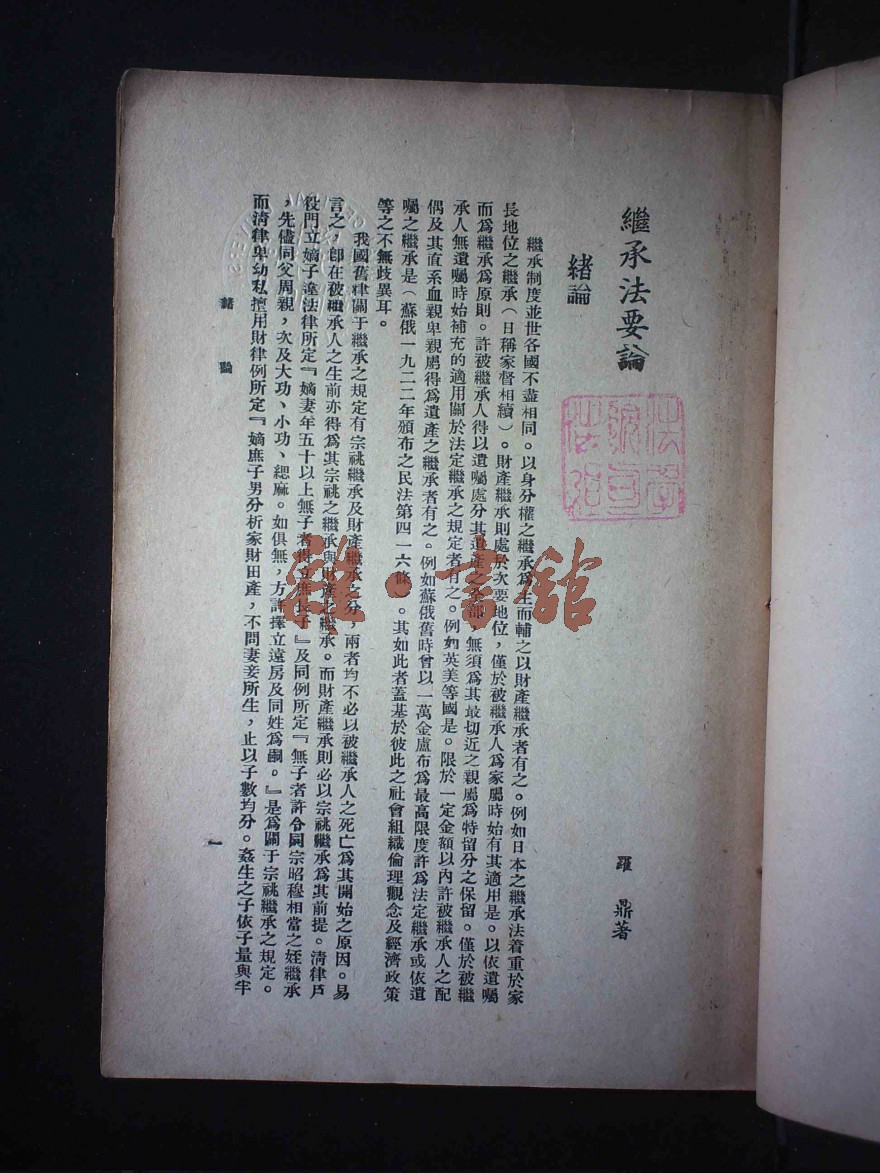 繼承法要論
羅鼎著
緒論
繼承制度並世各國不盡相同。以身分權之繼承爲主而輔之以財產繼承者有之。例如日本之繼承法着重於家
長地位之繼承（日稱家督相續）。財產繼承則處於次要地位，僅於被繼承人爲家屬時始有其適用是。以依遺囑
而爲繼承爲原則。許被繼承人得以遺囑處分其遺產之全部，無須爲其最切近之親屬爲特留分之保留。僅於被繼
承人無遺囑時始補充的適用關於法定繼承之規定者有之。例如英美等國是。限於一定金額以內許被繼承人之配
偶及其直系血親卑親屬得爲遺產之繼承者有之。例如蘇俄舊時曾以一萬金盧布爲最高限度許爲法定繼承或依遺
囑之繼承是（蘇俄一九二二年頒布之民法第四一六條）。其如此者蓋基於彼此之社會組織倫理觀念及經濟政策
等之不無歧異耳。
我國舊律關于繼承之規定有宗祧繼承及財產繼承之分，兩者均不必以被繼承人之死亡爲其開始之原因。易
言之，卽在被繼承人之生前亦得爲其宗祧之繼承與財產之繼承。而財產繼承則必以宗祧繼承爲其前提。清律戶
役門立嫡子違法律所定『嫡妻年五十以上無子者得立庶長子』及同例所定『無子者許令同宗昭穆相當之姪繼承
，先儘同父周親，次及大功、小功、緦麻。如俱無，方許擇立遠房及同姓爲嗣。』是爲關于宗祧繼承之規定。
而清律卑幼私擅用財律例所定『嫡庶子男分析家財田產，不問妻妾所生，止以子數均分。姦生之子依子量與半
緒論
一